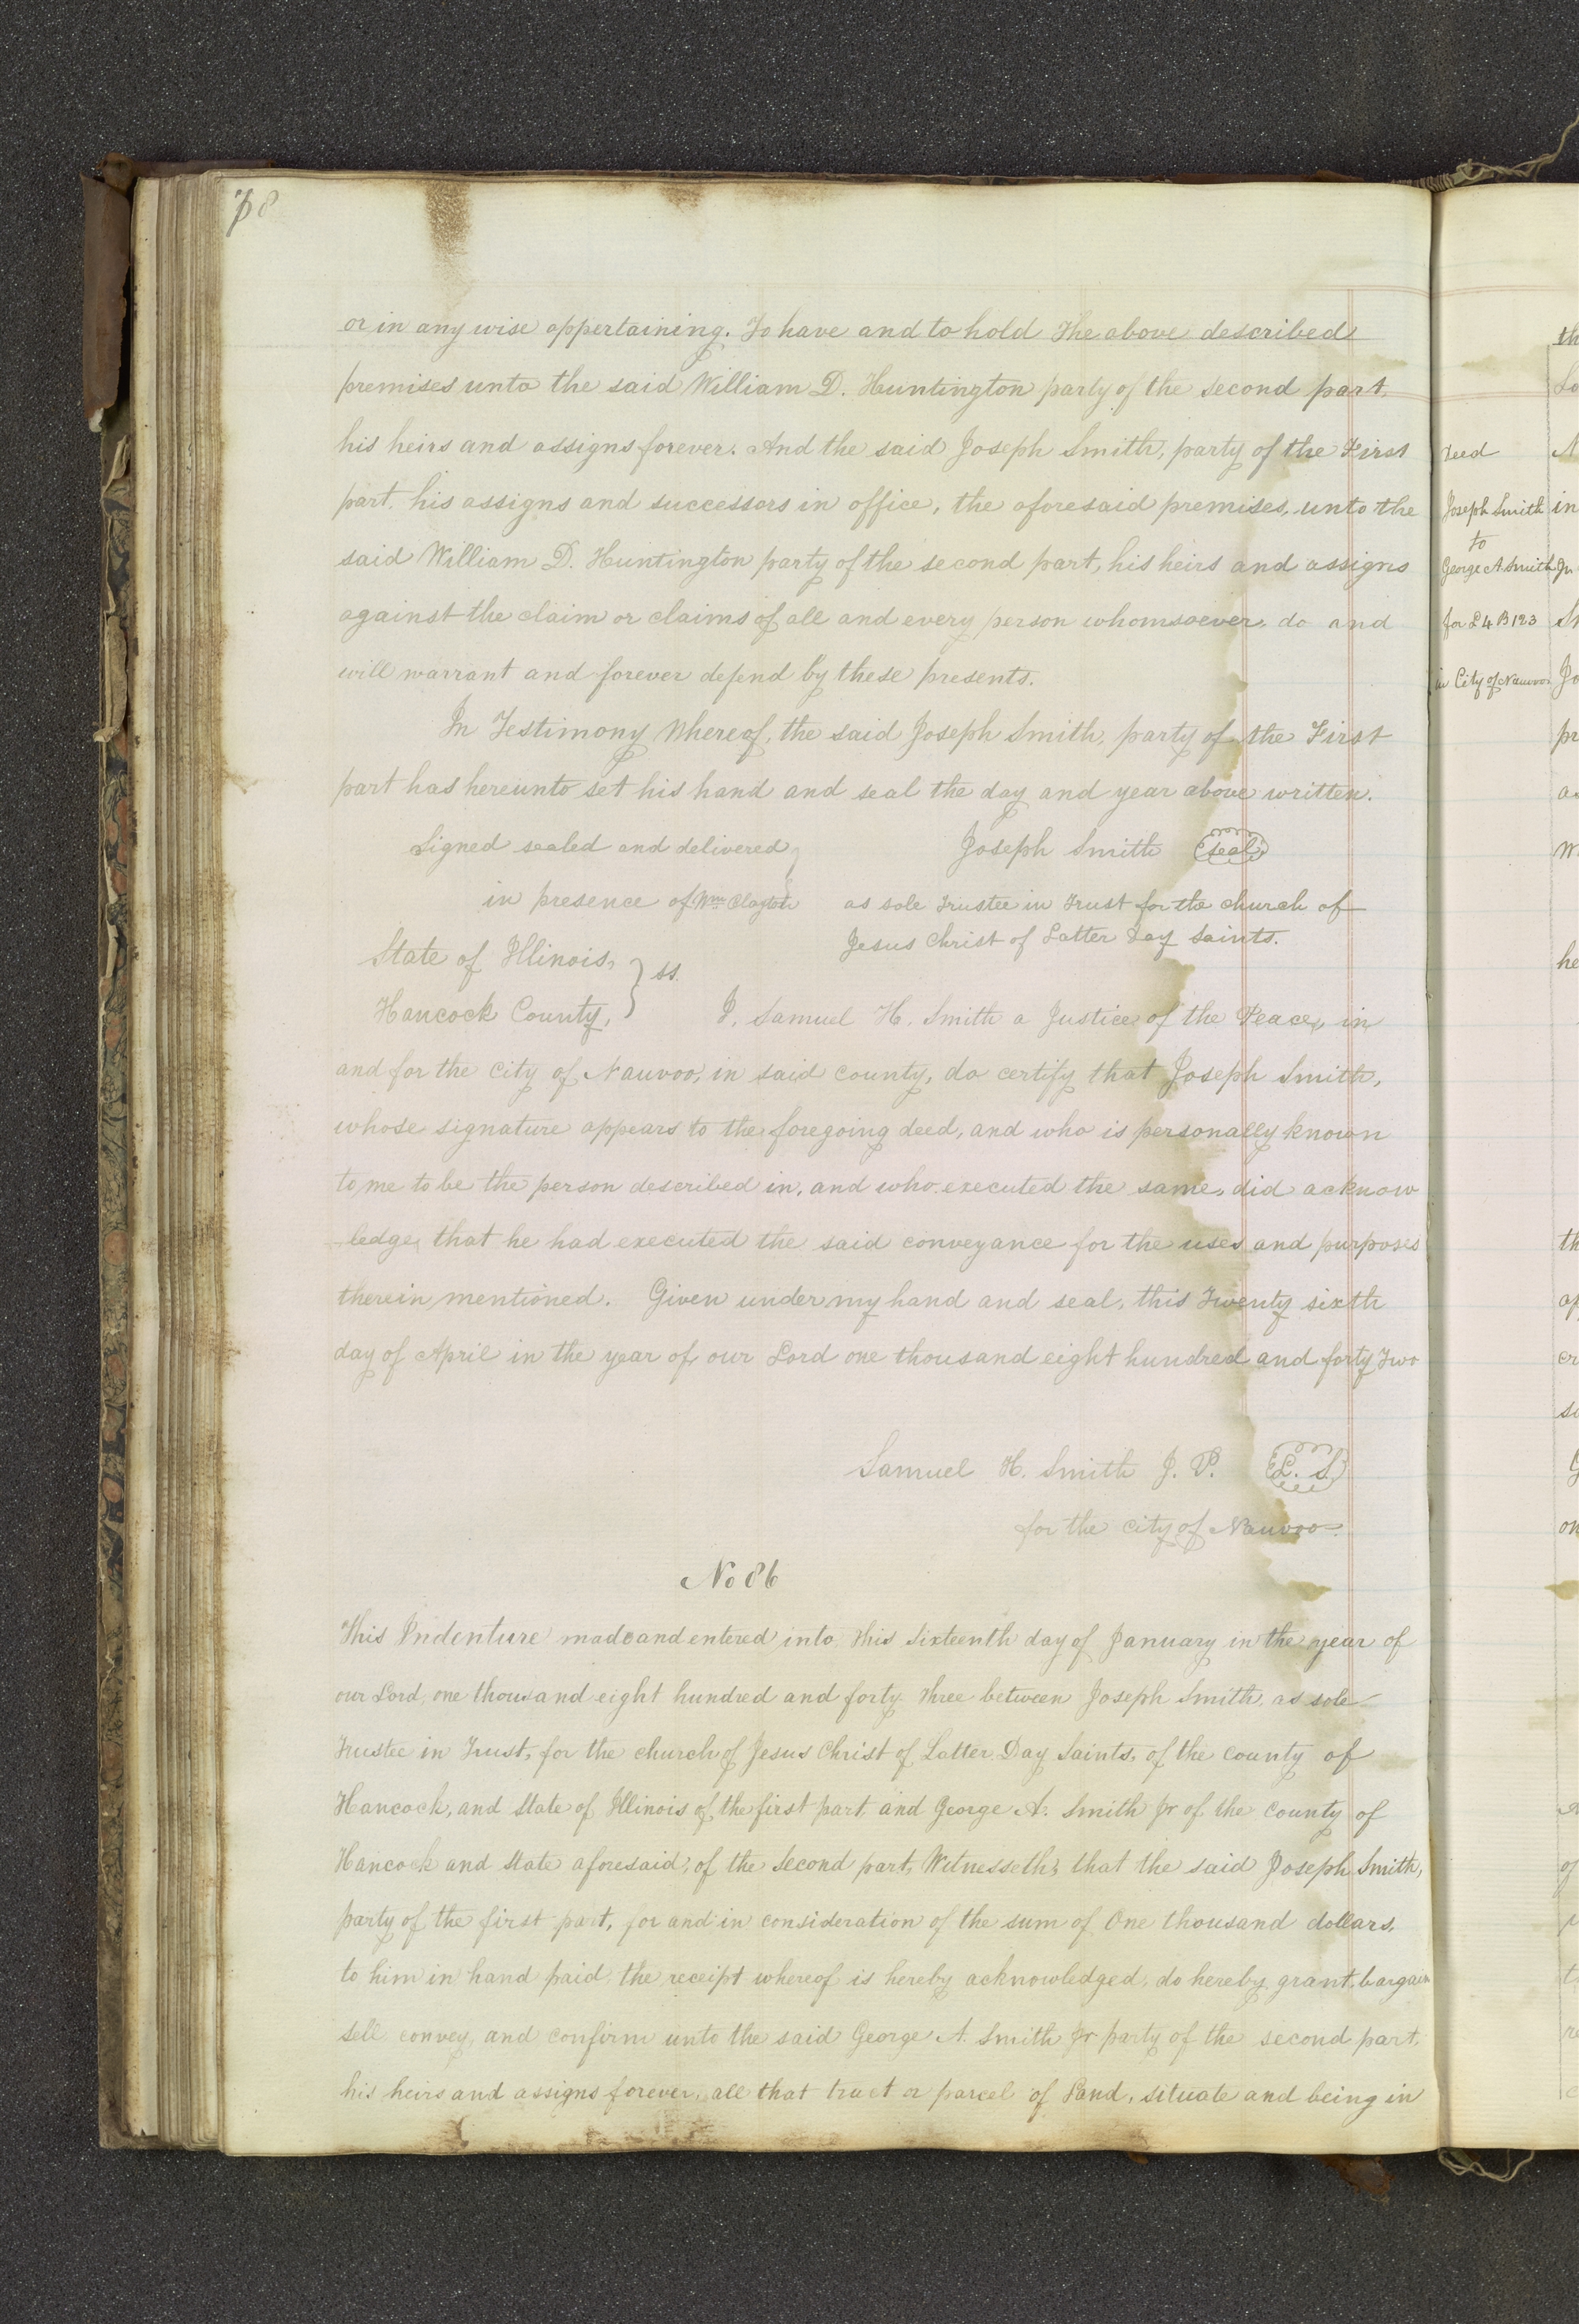 78
or in any wise appertaining. To have and to hold the above described
premises unto the said William D. Huntington party of the second part,
his heirs and assigns forever. And the said Joseph Smith, party of the First
part, his assigns and successors in office, the aforesaid premises, unto the
said William D. Huntington party of the second part, his heirs and assigns
against the claim or claims of all and every person whomsoever, do and
will warrant and forever defend by these presents.
In Testimony Whereof, the said Joseph Smith, party of the First
part has hereunto set his hand and seal the day and year above written.
Signed sealed and delivered
in presence of Wm Clayton
Joseph Smith (seal)
as sole Trustee in Trust for the church of
Jesus Christ of Latter Day Saints.
State of Illinois,
Hancock County, } ss.
I, Samuel H. Smith a Justice of the Peace, in
and for the city of Nauvoo, in said county, do certify that Joseph Smith,
whose signature appears to the foregoing deed, and who is personally known
to me to be the person described in, and who executed the same, did acknow
-ledge, that he had executed the said conveyance for the uses and purposes
therein mentioned. Given under my hand and seal, this Twenty sixth
day of April in the year of our Lord one thousand eight hundred and forty Two
Samuel H. Smith J. P. (L. S.)
for the city of Nauvoo.
No 86
This Indenture made and entered into this sixteenth day of January in the year of
our Lord, one thousand eight hundred and forty three between Joseph Smith, as sole
Trustee in Trust, for the church of Jesus Christ of Latter Day Saints, of the county of
Hancock, and State of Illinois of the first part, and George A. Smith Jr of the County of
Hancock and State aforesaid, of the Second part, Witnesseth, that the said Joseph Smith,
party of the first part, for and in consideration of the sum of One thousand dollars,
to him in hand paid, the receipt whereof is hereby acknowledged, do hereby grant, bargain
sell convey, and confirm unto the said George A. Smith Jr party of the second part,
his heirs and assigns forever, all that tract or parcel of Land, situate and being in
Deed
Joseph Smith
to
George A. Smith Jr
for L 4 B 123
in City of Nauvoo